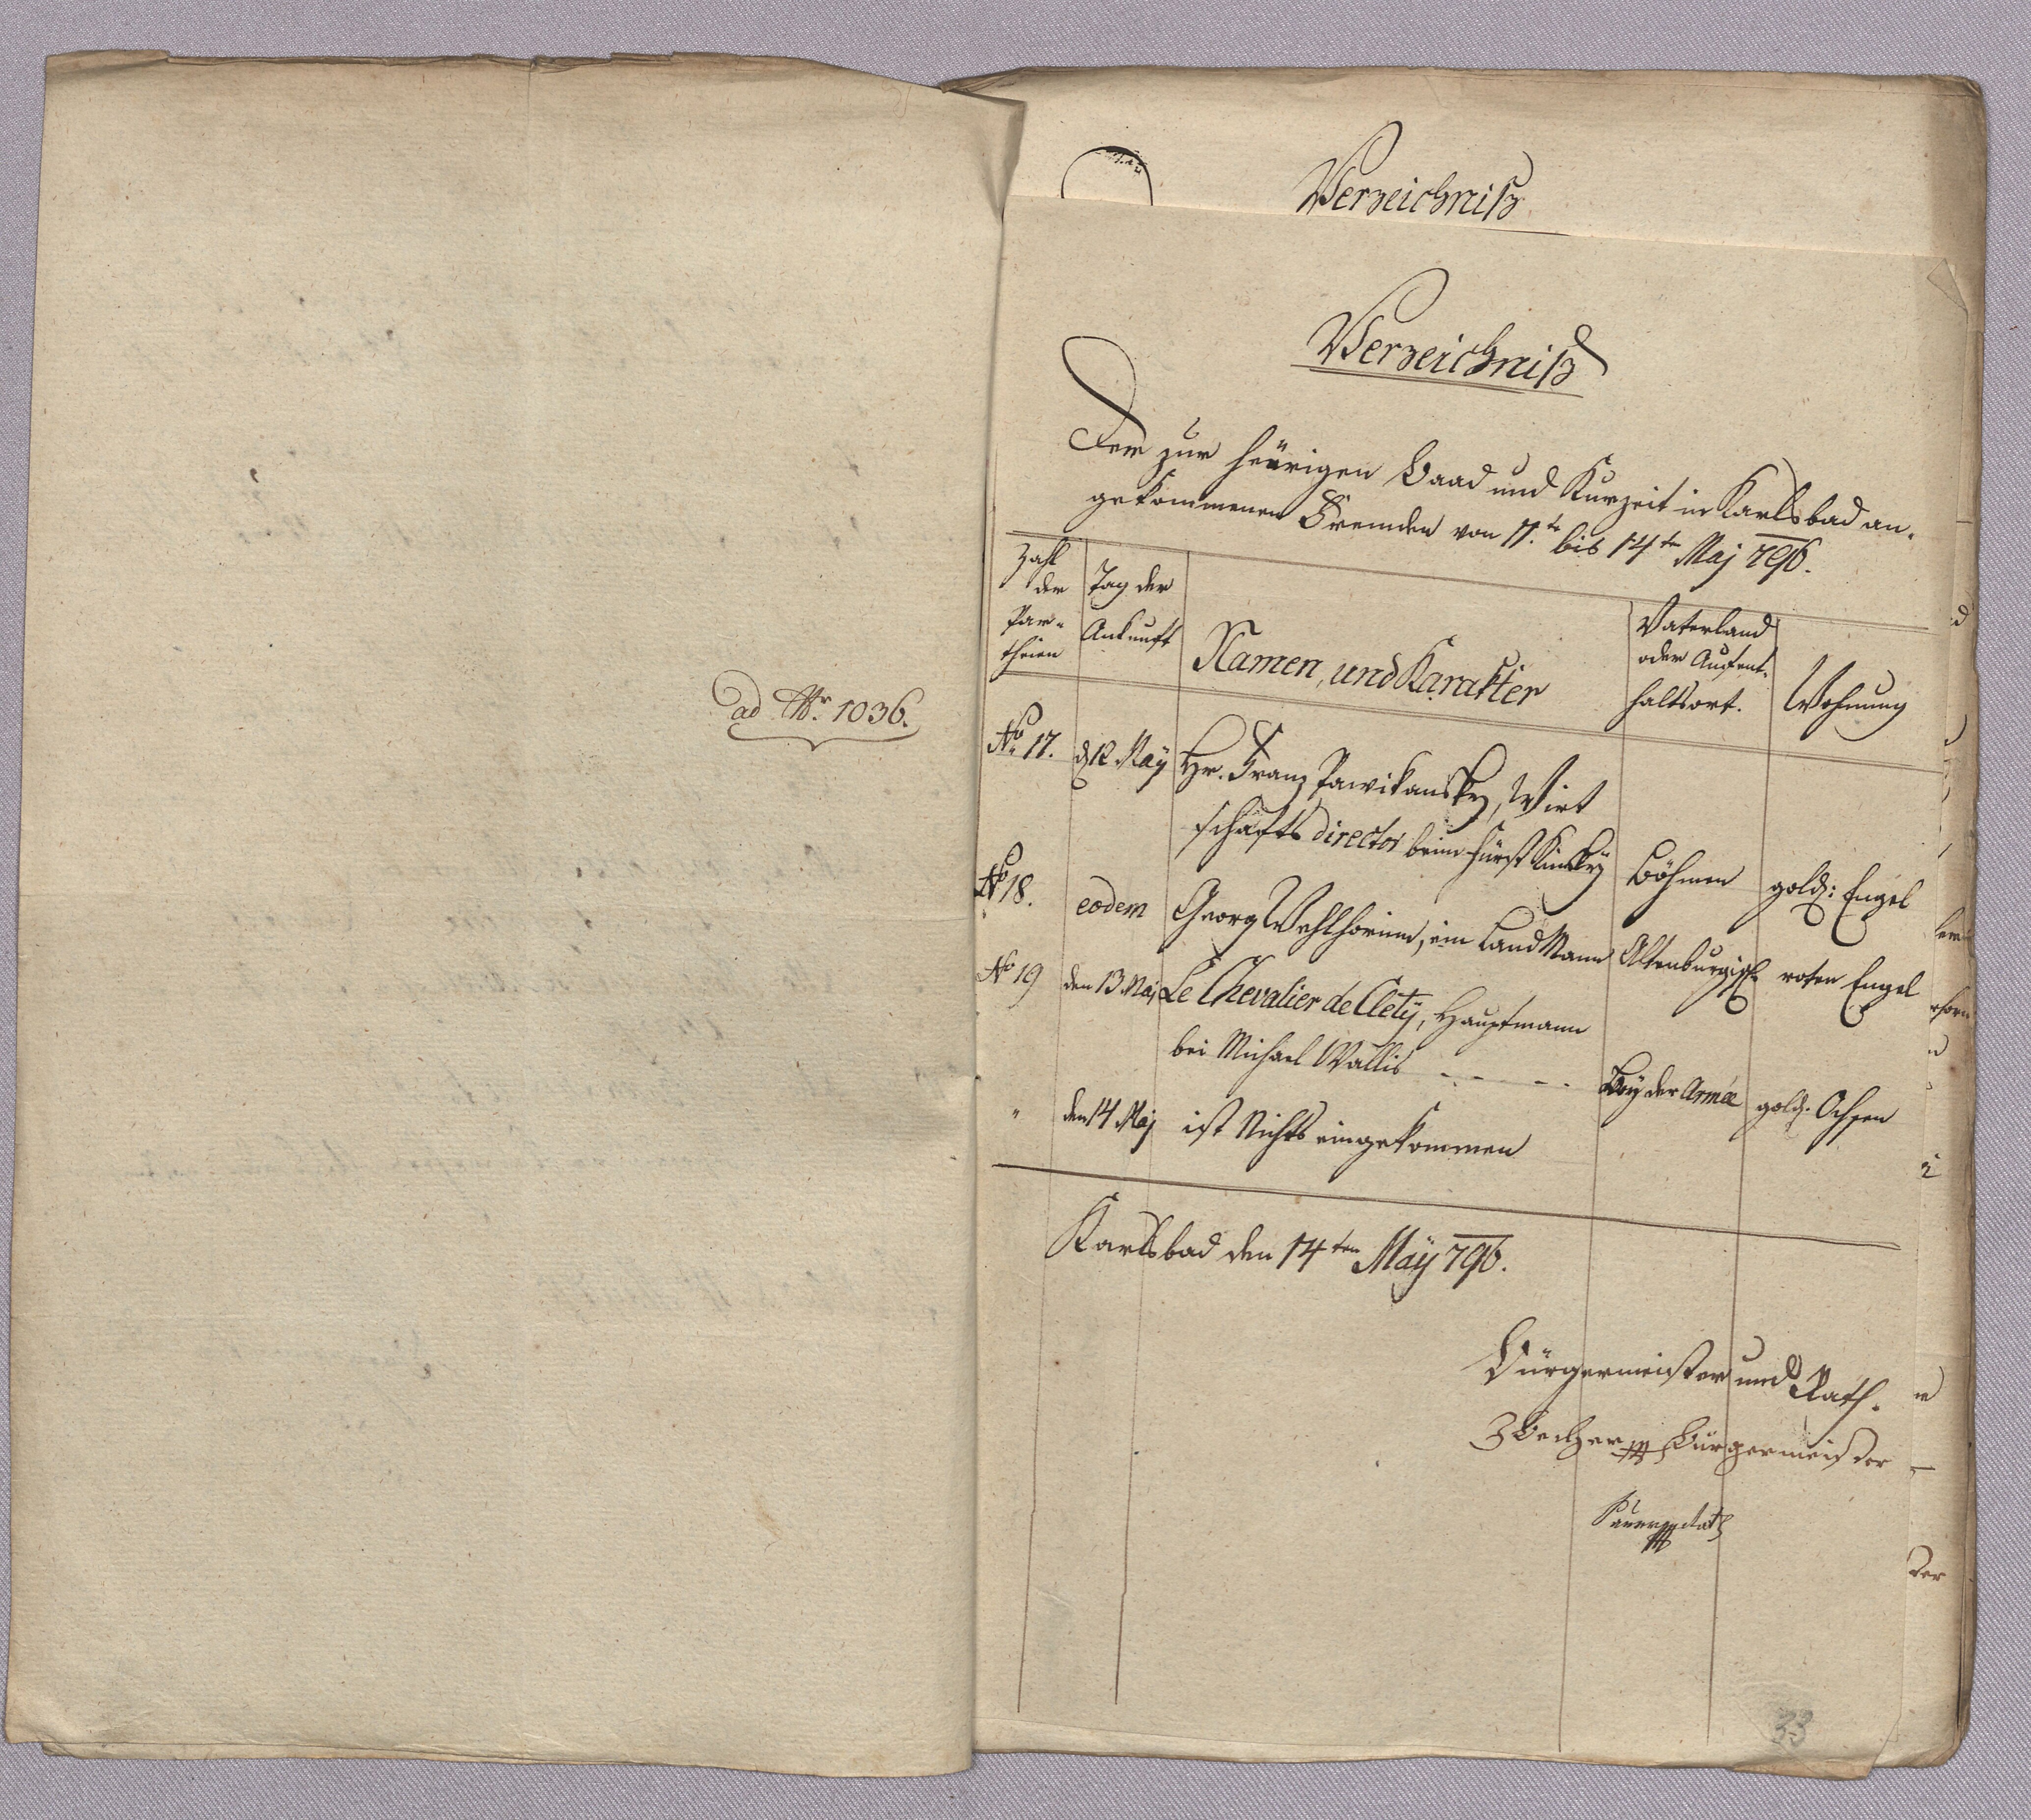 ad Nr. 1036.
Verzeichniß
Verzeichniß
Der zur heurigen Baad und Kurzeit in Karlsbad an-
gekommenen Fremden von 11.te bis 14te Maj 796.
Zahl
der
Par-
theien
Tag der
Ankunft
Namen, und Karakter
Vaterland
oder Aufent-
haltsort.
Wohnung
No 17. d 12 Maÿ Hr. Franz Pawikansky, Wirt
schafts director beim Fürst Kinskÿ Böhmen gold: Engel
No 18. eodem Georg, ein Land Mann Altenburgisch roten Engel
No 19 den 13. Maj Le Chevalier de Cletÿ, Hauptmann
bei Michael Wallis - - - - Beÿ der Armée gold. Ochsen
" den 14 Maj ist Nichts eingekommen
Karlsbad den 14ten Maÿ 796.
Bürgermeister und Rath.
Becher Bürgermeister
Rath
33